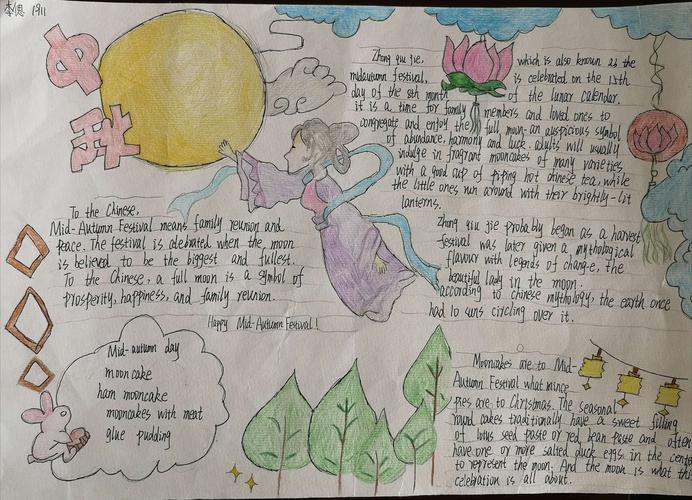 李偲 1911
中
秋
Zhong qiu jie,
which is also known as the
midautumn festival,
is celebrated on the 15th
day of the 8th month
of the lunar calendar.
it is a time for family members and loved ones to
congregate and enjoy the full moon, an auspicious symbol
of abundance, harmony and luck. adults will usually
indulge in fragrant mooncakes of many varieties
with a good cup of piping hot chinese tea, while
the little ones run around with their brightly-lit
lanterns.
Zhong qiu jie probably began as a harvest
festival was later given a mythological
flavour with legends of chang-e, the
beautiful lady in the moon.
according to chinese mythology, the earth once
had 10 suns circling over it.
To the Chinese,
Mid-Autumn Festival means family reunion and
peace. The festival is celebrated when the moon
is believed to be the biggest and fullest.
To the Chinese, a full moon is a symbol of
prosperity, happiness, and family reunion.
Happy Mid-Autumn Festival!
Mid-autumn day
moon cake
ham mooncake
mooncakes with meat
glue pudding
Mooncakes are to Mid-
Autumn Festival what mince
pies are to Christmas. The seasonal
round cakes traditionally have a sweet filling
of lotus seed paste or red bean paste and often
have one or more salted duck eggs in the cente
to represent the moon. And the moon is what this
celebration is all about.